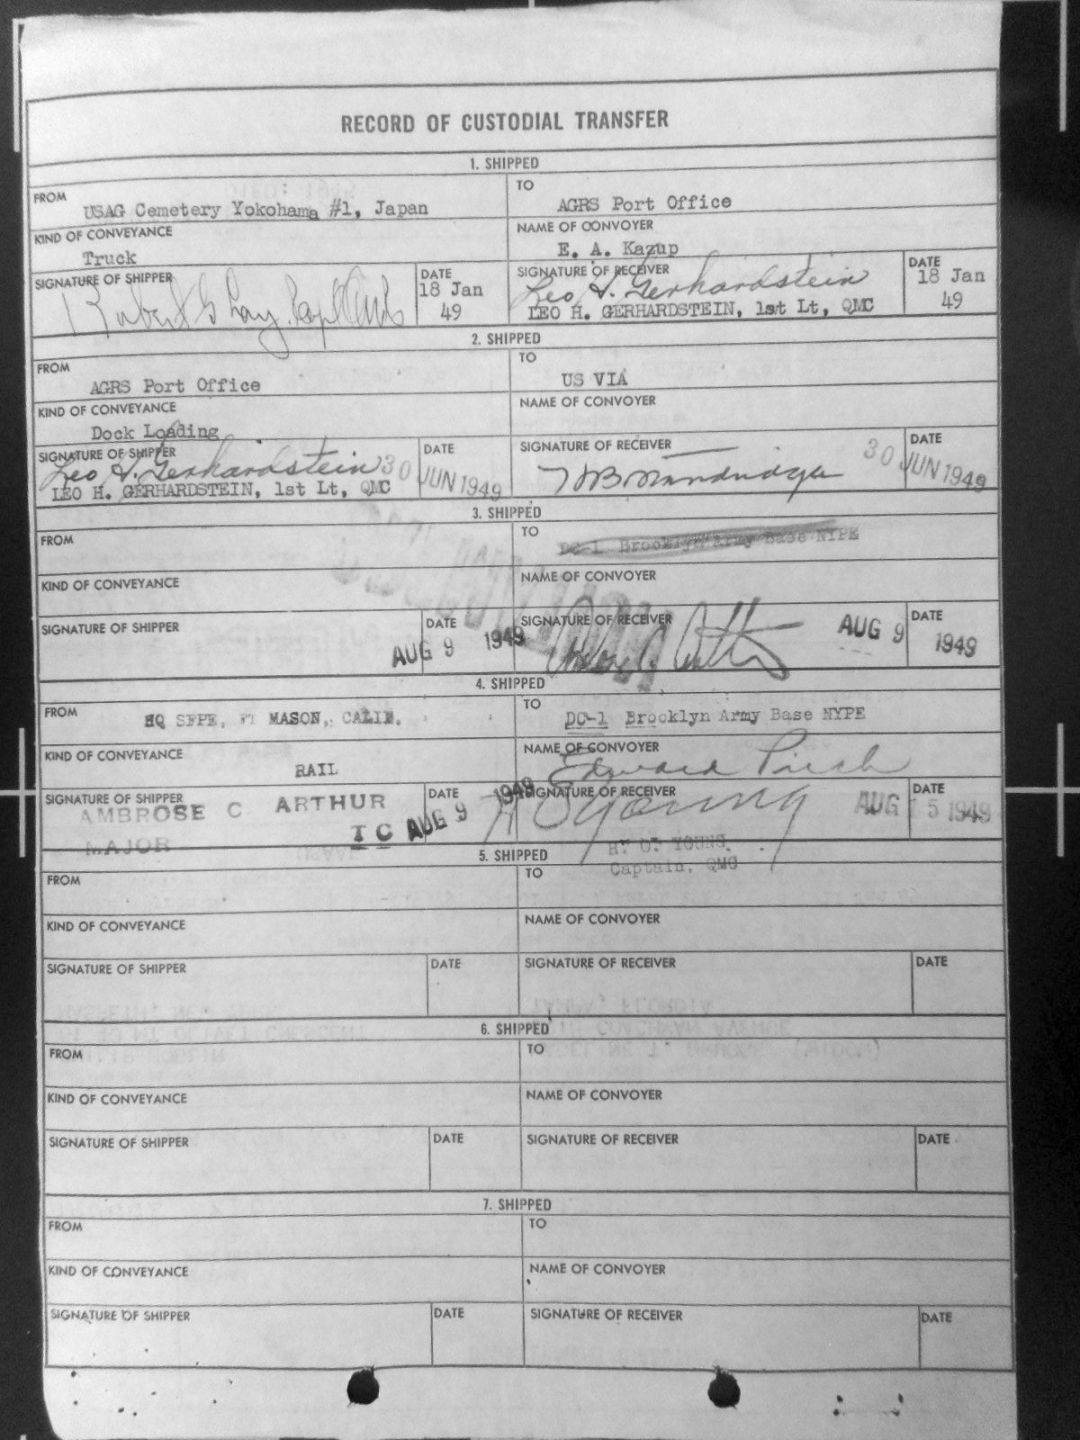 RECORD OF CUSTODIAL TRANSFER
1. SHIPPED
FROM USAG Cemetery Yokohama #1, Japan
TO AGRS Port Office
KIND OF CONVEYANCE Truck
NAME OF CONVOYER E. A. Kazup
SIGNATURE OF SHIPPER
DATE 18 Jan 49
SIGNATURE OF RECEIVER Leo H. Gerhardstein
LEO H. GERHARDSTEIN, 1st Lt, QMC
DATE 18 Jan 49
2. SHIPPED
FROM AGRS Port Office
TO US VIA
KIND OF CONVEYANCE Dock Loading
NAME OF CONVOYER
SIGNATURE OF SHIPPER Leo H. Gerhardstein
LEO H. GERHARDSTEIN, 1st Lt, QMC
DATE 30 JUN 1949
SIGNATURE OF RECEIVER
DATE 30 JUN 1949
3. SHIPPED
FROM
TO DC-1 Brooklyn Army Base NYPE
KIND OF CONVEYANCE
NAME OF CONVOYER
SIGNATURE OF SHIPPER
DATE AUG 9 1949
SIGNATURE OF RECEIVER
DATE AUG 9 1949
4. SHIPPED
FROM HQ SFPE, FT MASON, CALIF.
TO DC-1 Brooklyn Army Base NYPE
KIND OF CONVEYANCE RAIL
NAME OF CONVOYER Edward
SIGNATURE OF SHIPPER
AMBROSE C ARTHUR
MAJOR TC
DATE AUG 9 1949
SIGNATURE OF RECEIVER H O Young
H. O. YOUNG
Captain, QMC
DATE AUG 15 1949
5. SHIPPED
FROM
TO
KIND OF CONVEYANCE
NAME OF CONVOYER
SIGNATURE OF SHIPPER
DATE
SIGNATURE OF RECEIVER
DATE
6. SHIPPED
FROM
TO
KIND OF CONVEYANCE
NAME OF CONVOYER
SIGNATURE OF SHIPPER
DATE
SIGNATURE OF RECEIVER
DATE
7. SHIPPED
FROM
TO
KIND OF CONVEYANCE
NAME OF CONVOYER
SIGNATURE OF SHIPPER
DATE
SIGNATURE OF RECEIVER
DATE